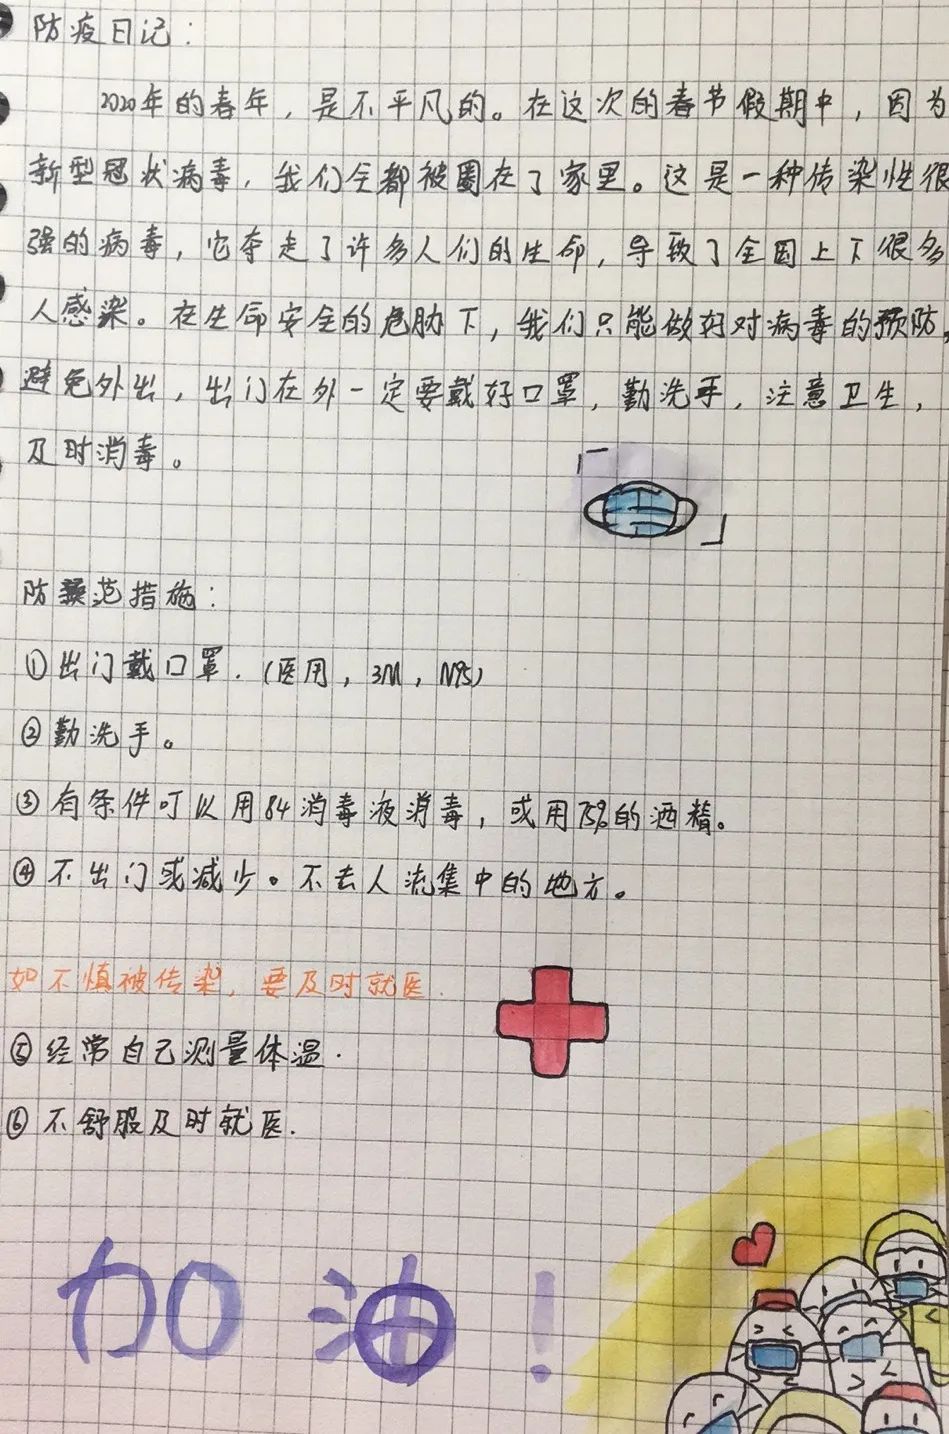 防疫日记:
2020年的春年，是不平凡的。在这次的春节假期中，因为
新型冠状病毒，我们全都被圈在了家里。这是一种传染性很
强的病毒，它夺走了许多人们的生命，导致了全国上下很多
人感染。在生命安全的危胁下，我们只能做好对病毒的预防,
避免外出，出门在外一定要戴好口罩，勤洗手，注意卫生，
及时消毒。
防范措施:
①出门戴口罩.(医用，3M，N95)
②勤洗手。
③有条件可以用84消毒液消毒，或用75%的酒精。
④不出门或减少。不去人流集中的地方。
如不慎被传染，要及时就医.
⑤经常自己测量体温.
⑥不舒服及时就医.
加油!